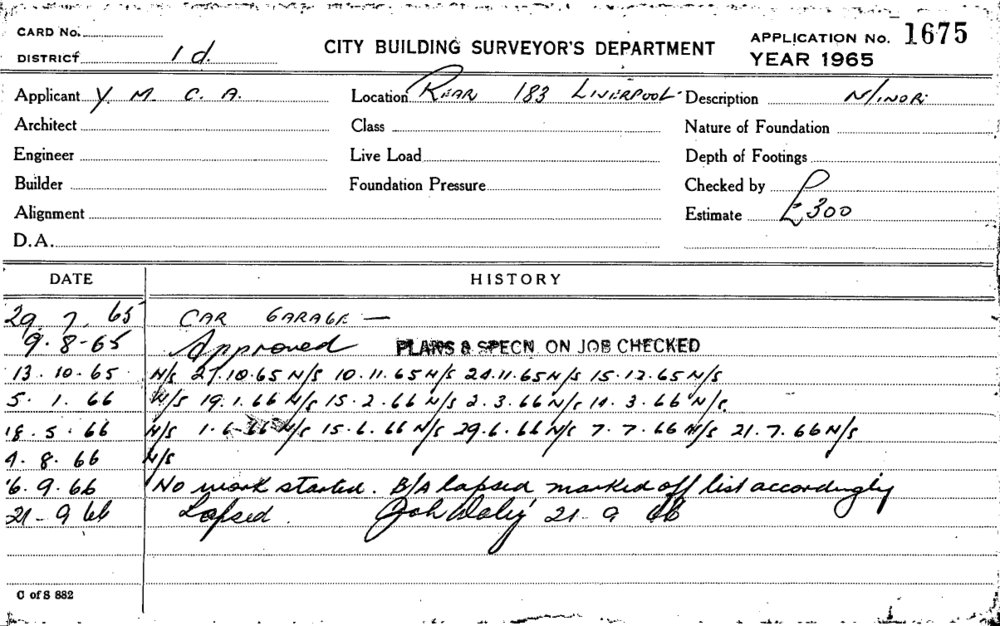 CARD No.
DISTRICT 1 d.
CITY BUILDING SURVEYOR'S DEPARTMENT
APPLICATION No. 1675
YEAR 1965
Applicant Y M C A. Location REAR 183 LIVERPOOL Description MINOR
Architect Class Nature of Foundation
Engineer Live Load Depth of Footings
Builder Foundation Pressure Checked by
Alignment Estimate £300
D.A.
DATE HISTORY
29. 7. 65 CAR GARAGE —
9-8-65 Approved PLANS & SPECN. ON JOB CHECKED
13. 10. 65 N/S 27.10.65 N/S 10.11.65 N/S 24.11.65 N/S 15.12.65 N/S
5. 1. 66 N/S 19.1.66 N/S 15.2.66 N/S 2.3.66 N/S 3.66 N/S
18. 5. 66 N/S 1.6.66 N/S 15.6.66 N/S 29.6.66 N/S 7.7.66 N/S 21.7.66 N/S
4. 8. 66 N/S
6. 9. 66 No work started. B/A lapsed marked off list accordingly
21-9 66 Lapsed. 21-9 66
C of S 882